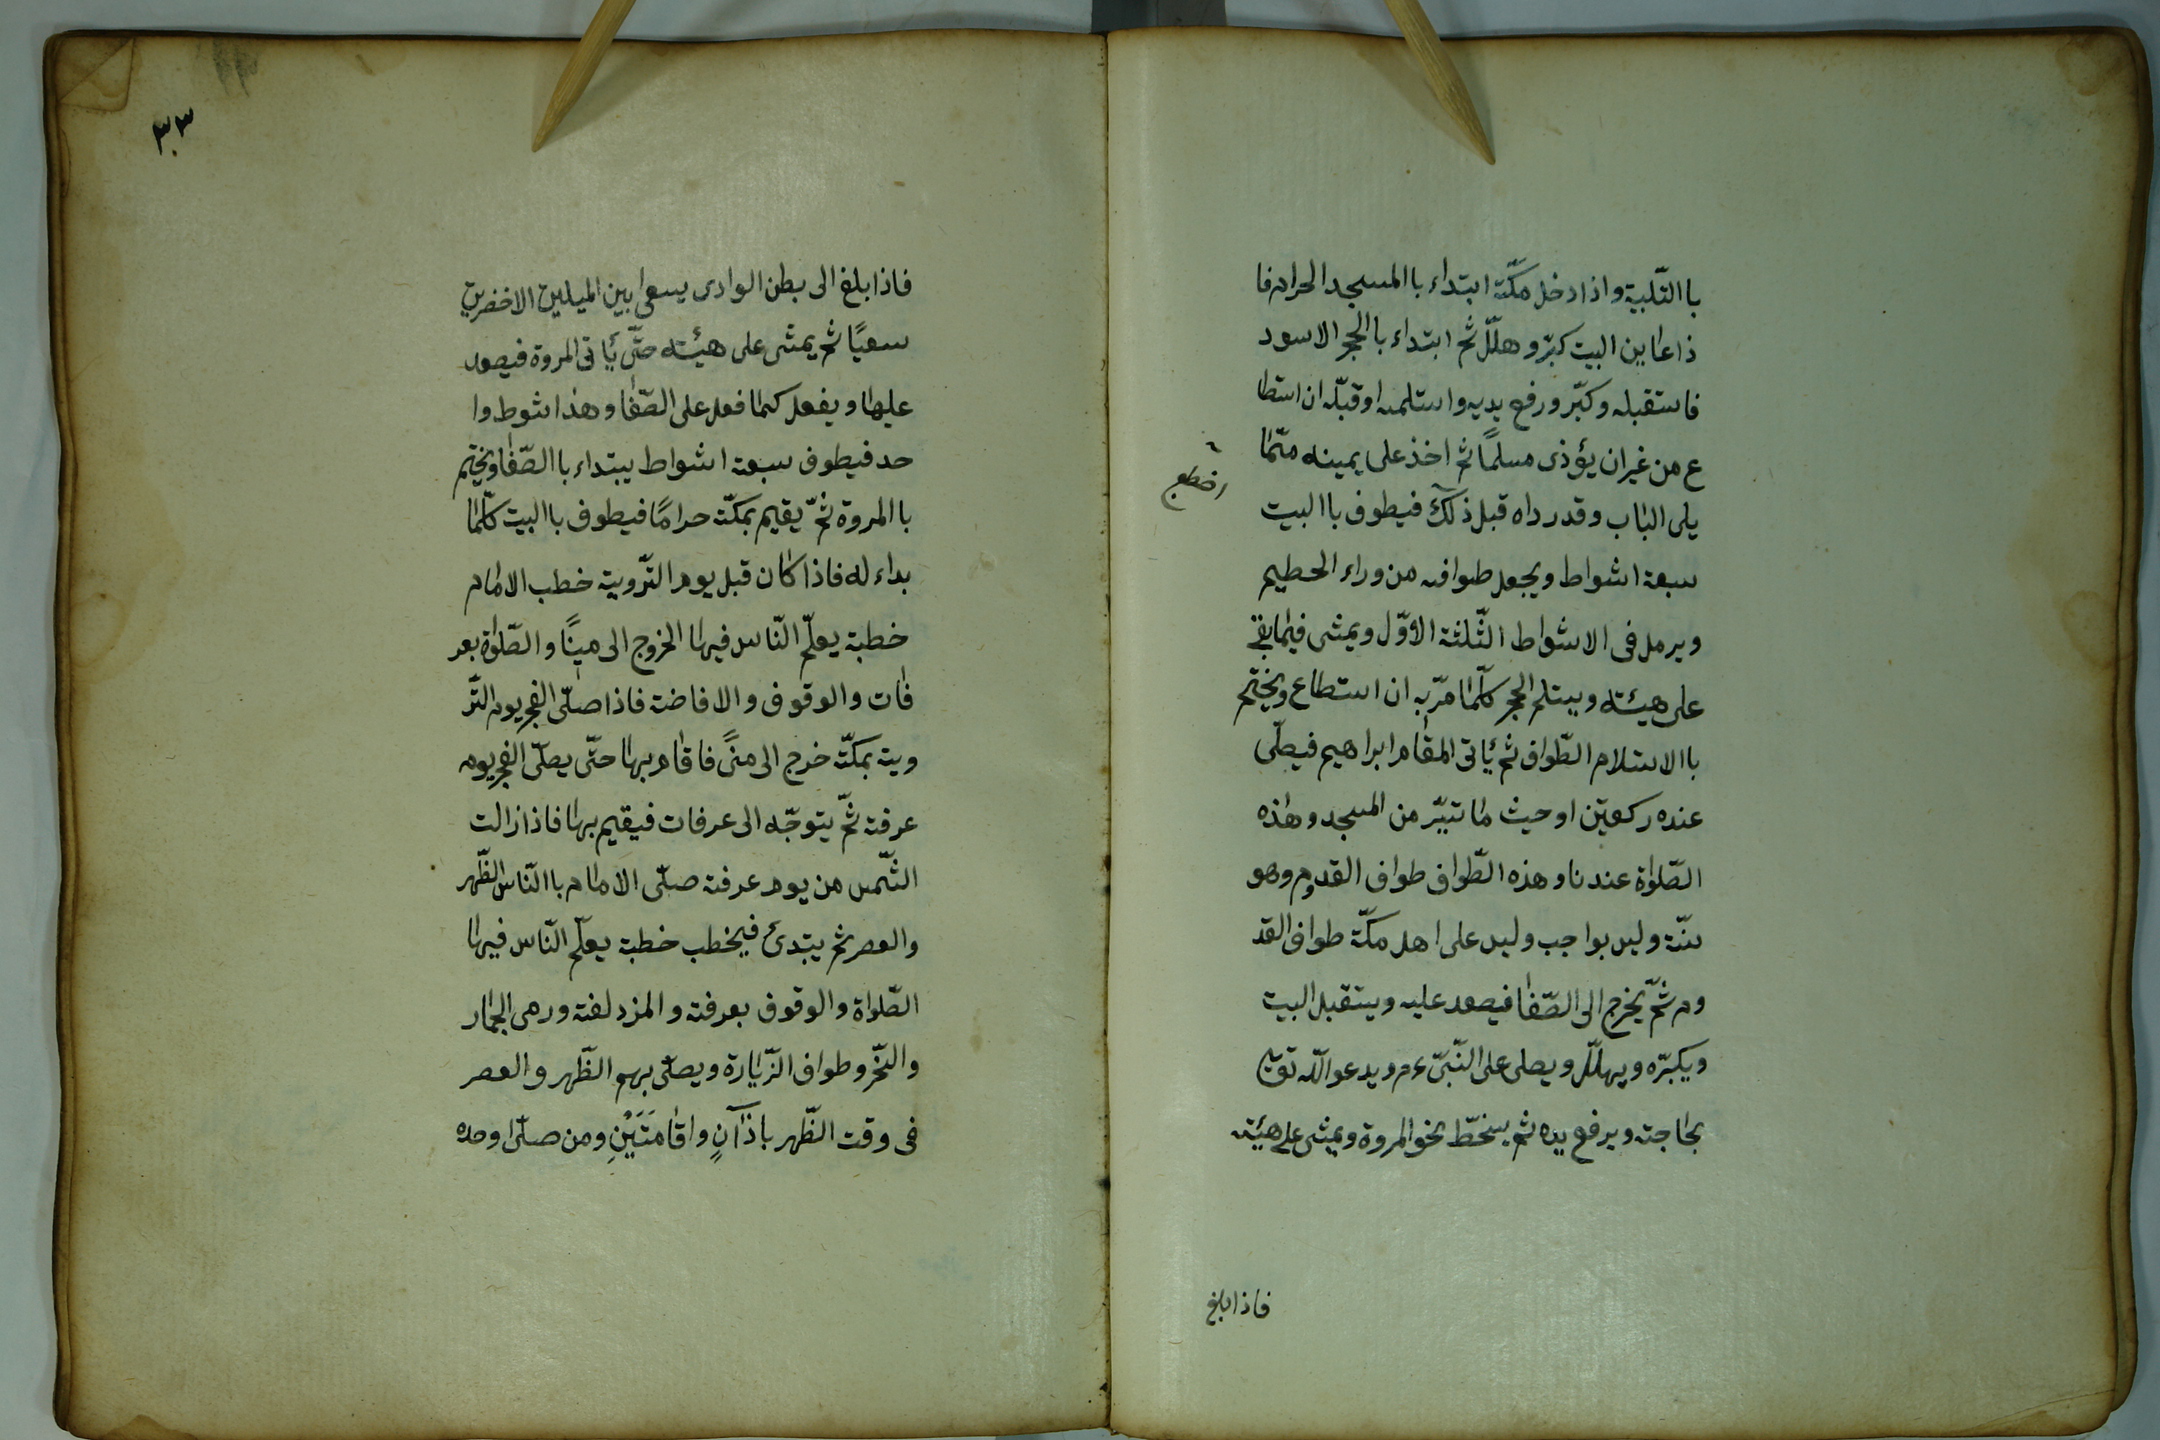 باالتّلبية واذا دخل مكّة ابتداء باالمسجد الحرام فا
ذا عاين البيت كبّر وهلّل ثم ابتداء باالحجر الاسود
فاستقبله وكبّر ورفع يديه واستلمه اوقبّله ان استطا
ع من غيران يؤذى مسلمًا ثم اخذ على يمينه ممّا
اضطبع
يلى الباب وقد رداه قبل ذلك فيطوف باالبيت
سبعة اشواط ويجعل طوافه من وراء الحطيم
ويرمل فى الاشواط الثّلثة الاوّل ويمشى فيما بقے
على هيئته ويستلم الحجر كلّما مرّ به ان استطاع ويختم
باالاستلام الطّواف ثم ئاتى المقام ابراهيم فيصلّى
عنده ركعتين اوحيث ما تيسّر من المسجد وهذه
الصّلوٰة عندنا وهذه الطّواف طواف القدوم وهو
سنّة وليس بواجب وليس على اهل مكّة طواف القد
وم ثمّ يخرج الى الصّفا فيصعد عليه ويستقبل البيت
ويكبّره ويهلّل ويصلى على النّبىّ عم ويدعوا اللّه تع
بحاجته ويرفع يده ثم ينحطّ نحو المروة ويمشى على هيئته
فاذا بلغ
٣٣
فاذا بلغ الى بطن الوادى يسعى بين الميلين الاخضرين
سعيًا ثم يمشى على هيئته حتّى ئاتى المروة فيصعد
عليها ويفعل كما فعل على الصّفا وهذا شوط وا
حد فيطوف سبعة اشواط يبتداء باالصّفا ويختم
باالمروة ثمّ يقيم بمكّة حرامًا فيطوف باالبيت كلّما
بداء له فاذا كان قبل يوم التّروية خطب الامام
خطبة يعلّم النّاس فيها الخروج الى مينًا والصّلوٰة بعر
فات والوقوف والافاضة فاذا صلّى الفجر يوم التّر
وية بمكّة خرج الى منًى فاقام بها حتّى يصلّى الفجر يوم
عرفة ثمّ يتوجّه الى عرفات فيقيم بها فاذا زالت
الشّمس من يوم عرفة صلّى الامام باالنّاس الظّهر
والعصر ثم يبتدئ فيخطب خطبة يعلّم النّاس فيها
الصّلواة والوقوف بعرفة والمزدلفة ورمى الجمار
والنّحر وطواف الزّيارة ويصلّى بهم الظّهر والعصر
فى وقت الظّهر باذآنٍ واقامَتَيْنِ ومن صلّى وحده